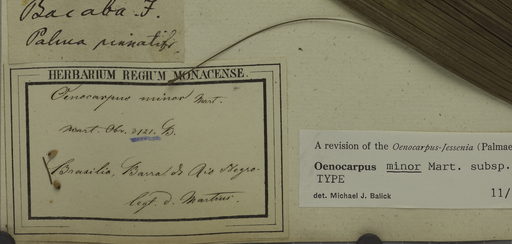 Bacaba. F.
Palma pinnatifr.
HERBARIUM REGIUM MONACENSE.
Oenocarpus minor Mart.
Mart. Obs. 3121. B.
Brasilia, Barra do Rio Negro.
legt. d. Martius.
A revision of the Oenocarpus-Jessenia (Palmae
Oenocarpus minor Mart. subsp.
TYPE
det. Michael J. Balick 11/